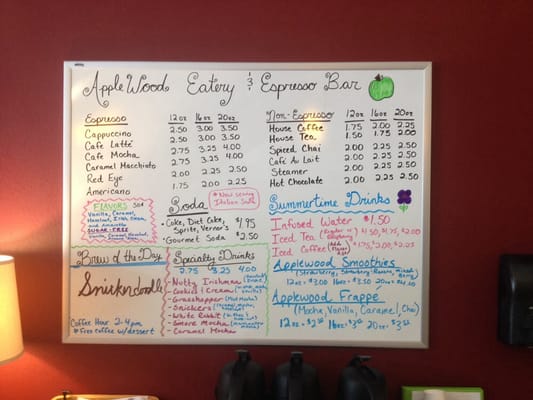 AppleWood Eatery & Espresso Bar
Espresso 12oz 16oz 20oz
Cappuccino 2.50 3.00 3.50
Cafe Latte 2.50 3.00 3.50
Cafe Mocha 2.75 3.25 4.00
Caramel Macchiato 2.75 3.25 4.00
Red Eye 2.00 2.25 2.50
Americano 1.75 2.00 2.25
FLAVORS
Vanilla, Caramel,
Hazelnut, Irish Cream,
and Amaretto
SUGAR-FREE
Vanilla, Caramel, Hazelnut,
Soda
*Now serving
Italian Soda
Coke, Diet Coke,
Sprite, Vernor's $1.95
*Gourmet Soda $2.50
Brew of the Day
Snickerdoodle
Coffee Hour 2-4pm
*Free coffee w/dessert
Specialty Drinks
2.75 3.25 4.00
- Nutty Irishman
- Cookies & Cream
- Grasshopper (Mint Mocha)
- Snickers
- White Rabbit
- Smore Mocha
- Caramel Mocha
Non-Espresso 12oz 16oz 20oz
House Coffee 1.75 2.00 2.25
House Tea 1.50 1.75 2.00
Spiced Chai 2.00 2.25 2.50
Café Au Lait 2.00 2.25 2.50
Steamer 2.00 2.25 2.50
Hot Chocolate 2.00 2.25 2.50
Summertime Drinks
Infused Water $1.50
Iced Tea
Iced Coffee $1.75, $2.00, $2.25
Applewood Smoothies
12oz 16oz 20oz
Applewood Frappe
(Mocha, Vanilla, Caramel, Chai)
12oz 16oz 20oz